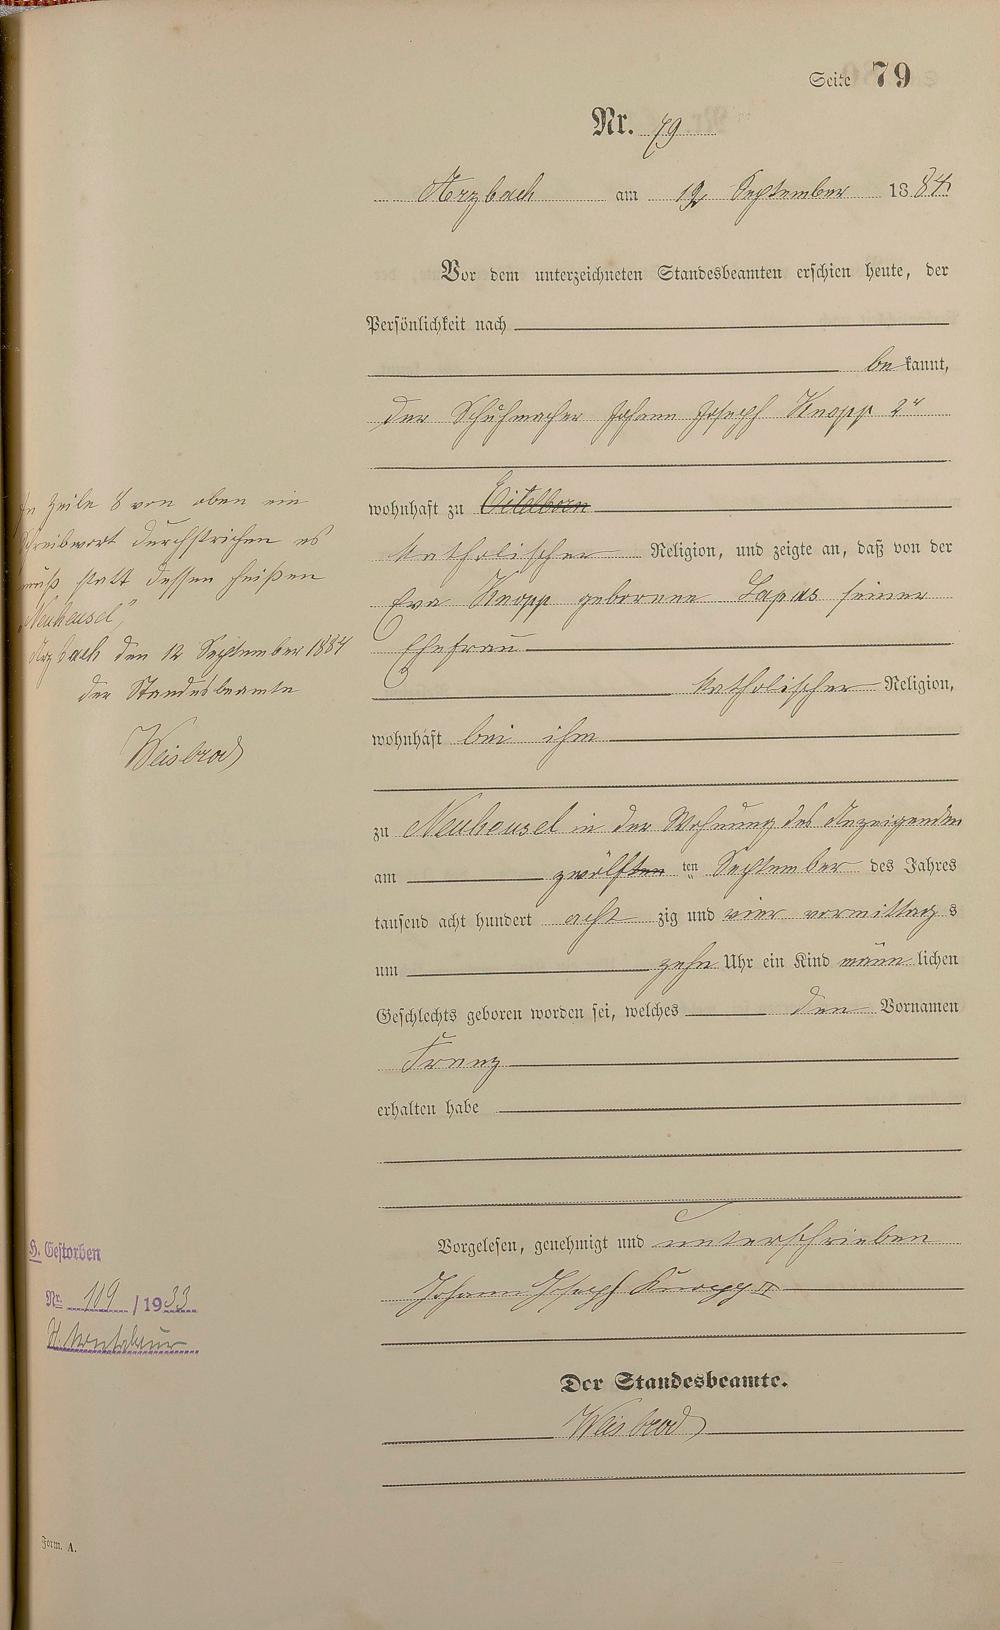 Seite 79
Nr. 79
Arzbach am 12 September 1884
Vor dem unterzeichneten Standesbeamten erschien heute, der
Persönlichkeit nach
bekannt,
der Schuhmacher Johann Joseph Knopp 2r
wohnhaft zu Eitelborn
katholischer Religion, und zeigte an, daß von der
Eva Knopp geborene seiner
Ehefrau
katholischer Religion,
wohnhaft bei ihm
zu Neuheusel in der Wohnung des Anzeigenden
am zwölften ten September des Jahres
tausend acht hundert acht zig und vier vormittags
um zehn Uhr ein Kind männlichen
Geschlechts geboren worden sei, welches den Vornamen
Franz
erhalten habe
Vorgelesen, genehmigt und unterschrieben
Johann Joseph Knopp II
Der Standesbeamte.
Weisbrod
In Zeile 8 von oben ein
Schreibwort durchstrichen es
muß statt dessen heißen
"Neuheusel"
Arzbach den 12 September 1884
der Standesbeamte
Weisbrod
H. Gestorben
Nr. 119 / 1933
Form. A.